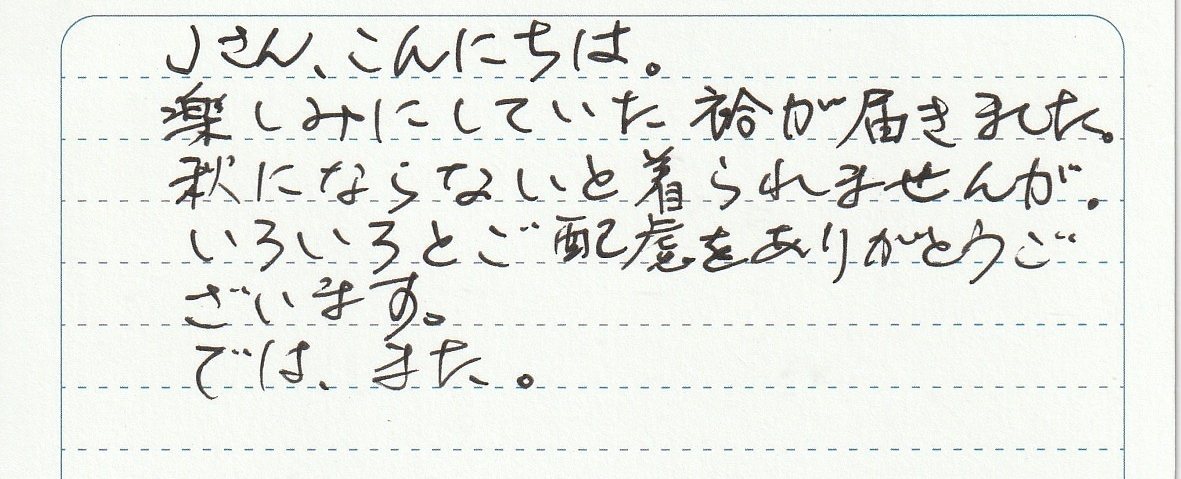 Jさん、こんにちは。
楽しみにしていた袷が届きました。
秋にならないと着られませんが。
いろいろとご配慮をありがとうご
ざいます。
では、また。